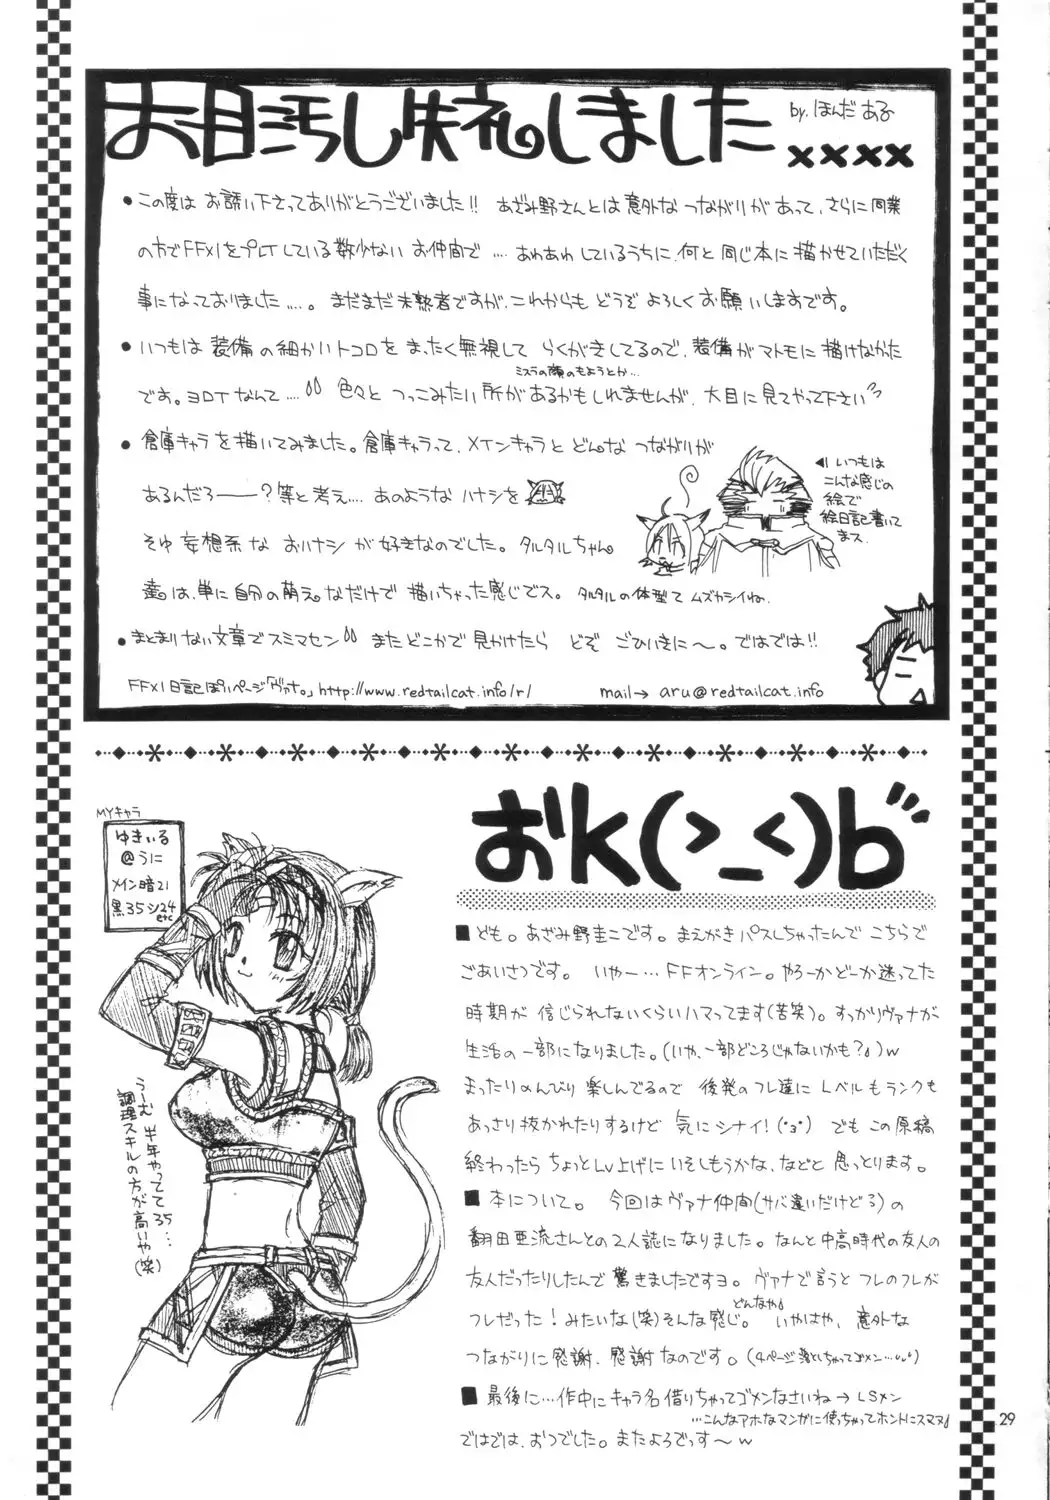 お目汚し失礼しました
by.ほんだ ある
××××
●この度は お誘い下さってありがとうございました!! あざみ野さんとは意外な つながりがあって、さらに同業
の方でFFXIをプレイしている数少ない お仲間で‥‥あわあわしているうちに、何と同じ本に描かせていただく
事になっておりました‥‥。まだまだ未熟者ですが、これからも どうぞ よろしく お願いしますです。
●いつもは 装備の細かいトコロを まったく無視して らくがきしてるので、装備がマトモに描けなかた
ミスラの顔のもようとか…
です。ヨロイなんて‥‥ 色々と つっこみたい所があるかもしれませんが、大目に見てやって下さい
●倉庫キャラを描いてみました。倉庫キャラって、メインキャラと どんな つながりが
あるんだろ――?等と考え‥‥あのような ハナシを
そゆ 妄想系な おハナシ が 好きなのでした。タルタルちゃん
達は、単に自分の萌え。なだけで 描いちゃった感じでス。タルタルの体型て ムズカシイね。
◀いつもは
こんな感じの
絵で
絵日記書いて
まス.
●まとまりない文章でスミマセン またどこかで見かけたら どぞ ごひいきに〜。ではでは!!
FFXI日記ぽいページ「ヴァナ。」http://www.redtailcat.info/r/ mail→ aru@redtailcat.info
MYキャラ
ゆきいる
@うに
メイン暗21
黒35シ24
etc
うーむ 半年やってて35…
調理スキルの方が高いや(笑)
おk(>_<)b
■ども。あざみ野圭二です。まえがきパスしちゃったんで こちらで
ごあいさつです。いやー…FFオンライン。やろーかどーか迷ってた
時期が 信じられないくらいハマってます(苦笑)。すっかりヴァナが
生活の一部になりました。(いや、一部どころじゃないかも?♪)w
まったりのんびり 楽しんでるので 後発のフレ達に Lベルもランクも
あっさり抜かれたりするけど 気にシナイ!(°3°) でも この原稿
終わったら ちょっとLv上げに いそしもうかな、などと 思っとります。
■本について。今回はヴァナ仲間(サバ違いだけどろ)の
翻田亜流さんとの2人誌になりました。なんと中高時代の友人の
友人だったりしたんで 驚きましたですヨ。ヴァナで言うと フレのフレが
フレだった!みたいな(笑)そんな感じ。いやはや、意外な
どんなや♪
つながりに感謝、感謝なのです。(4ページ落としちゃってゴメン…)
■最後に…作中にキャラ名借りちゃってゴメンなさいね→LSメン
…こんなアホなマンガに使っちゃってホントにスマヌ♪
ではでは、おつでした。またよろでっす〜w
29